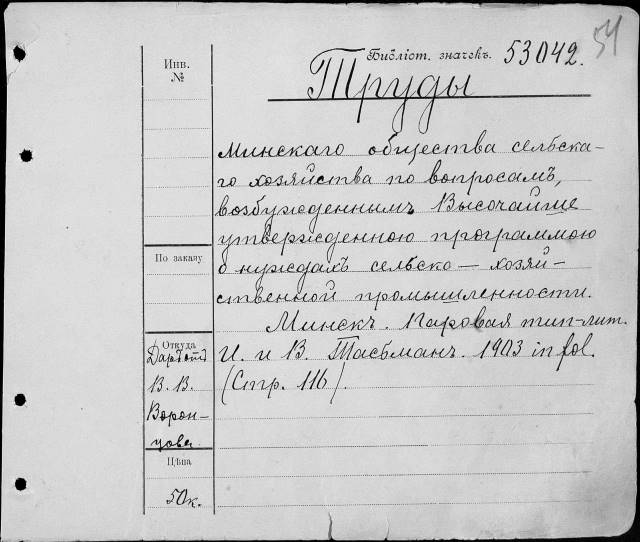 54
Библіот. значекъ. 53042.
Труды
Инв.
№
Минскаго общества сельска-
го хозяйства по вопросамъ,
возбужденнымъ Высочайше
утвержденною программою
о нуждахъ сельско-хозяй-
ственной промышленности.
Минскъ. Паровая тип-лит.
И. и В. Тасьманъ. 1903 in fol.
(Стр. 116).
По заказу
Откуда
Даръ отъ
В. В.
Ворон-
цова
Цѣна
50к.